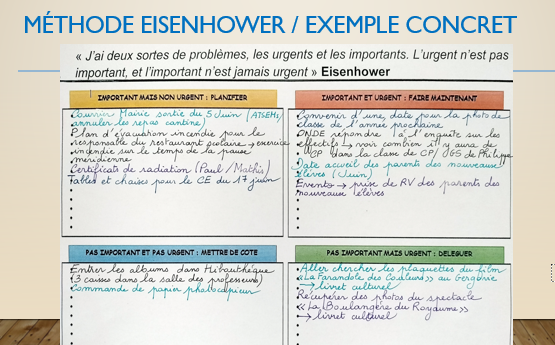 MÉTHODE EISENHOWER / EXEMPLE CONCRET
« J'ai deux sortes de problèmes, les urgents et les importants. L'urgent n'est pas
important, et l'important n'est jamais urgent » Eisenhower
IMPORTANT MAIS NON URGENT : PLANIFIER
Courrier Mairie sortie du 5 Juin (ATSEMs,
annuler les repas cantine)
Plan d'évacuation incendie pour le
responsable du restaurant scolaire → exercice
incendie sur le temps de la pause
méridienne
Certificats de radiation (Paul / Mathis)
Tables et chaises pour le CE du 17 juin
IMPORTANT ET URGENT : FAIRE MAINTENANT
Convenir d'une date pour la photo de
classe de l'année prochaine
ONDE répondre à l'enquête sur les
effectifs → voir combien il y aura de
CP dans la classe de CP/GS de Philippe
Date accueil des parents des nouveaux
élèves (Juin)
Events → prise de RV des parents des
nouveaux élèves
PAS IMPORTANT ET PAS URGENT : METTRE DE COTE
Entrer les albums dans Hibouthèque
(3 caisses dans la salle des professeurs)
Commande de papier photocopieur
PAS IMPORTANT MAIS URGENT : DELEGUER
Aller chercher les plaquettes du film
« La Farandole des Couleurs » au
→ livret culturel
Récupérer des photos du spectacle
« La Boulangère du Royaume »
→ livret culturel